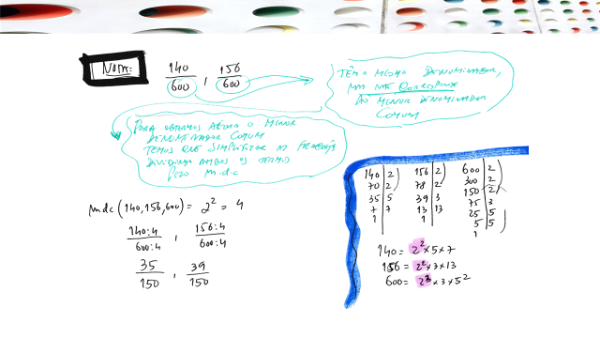 Nota:
140/600 , 156/600
TÊM O MESMO DENOMINADOR,
MAS NÃO CORRESPONDE
AO MENOR DENOMINADOR
COMUM
PARA OBTERMOS AGORA O MENOR
DENOMINADOR COMUM
TEMOS QUE SIMPLIFICAR AS FRACÇÕES
DIVIDINDO AMBOS OS TERMOS
PELO m.d.c
m.d.c (140,156,600) = 2² = 4
140:4/600:4 , 156:4/600:4
35/150 , 39/150
140 | 2 156 | 2 600 | 2
70 | 2 78 | 2 300 | 2
35 | 5 39 | 3 150 | 2
7 | 7 13 | 13 75 | 3
1 1 25 | 5
5 | 5
1
140 = 2² × 5 × 7
156 = 2² × 3 × 13
600 = 2³ × 3 × 5²